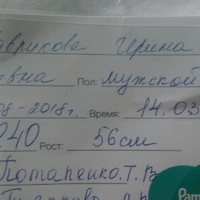 аврикова Герина
евна Пол: мужской
08-2018г. Время: 14.03
240 Рост: 56см
Потапенко.Т.В
Pam